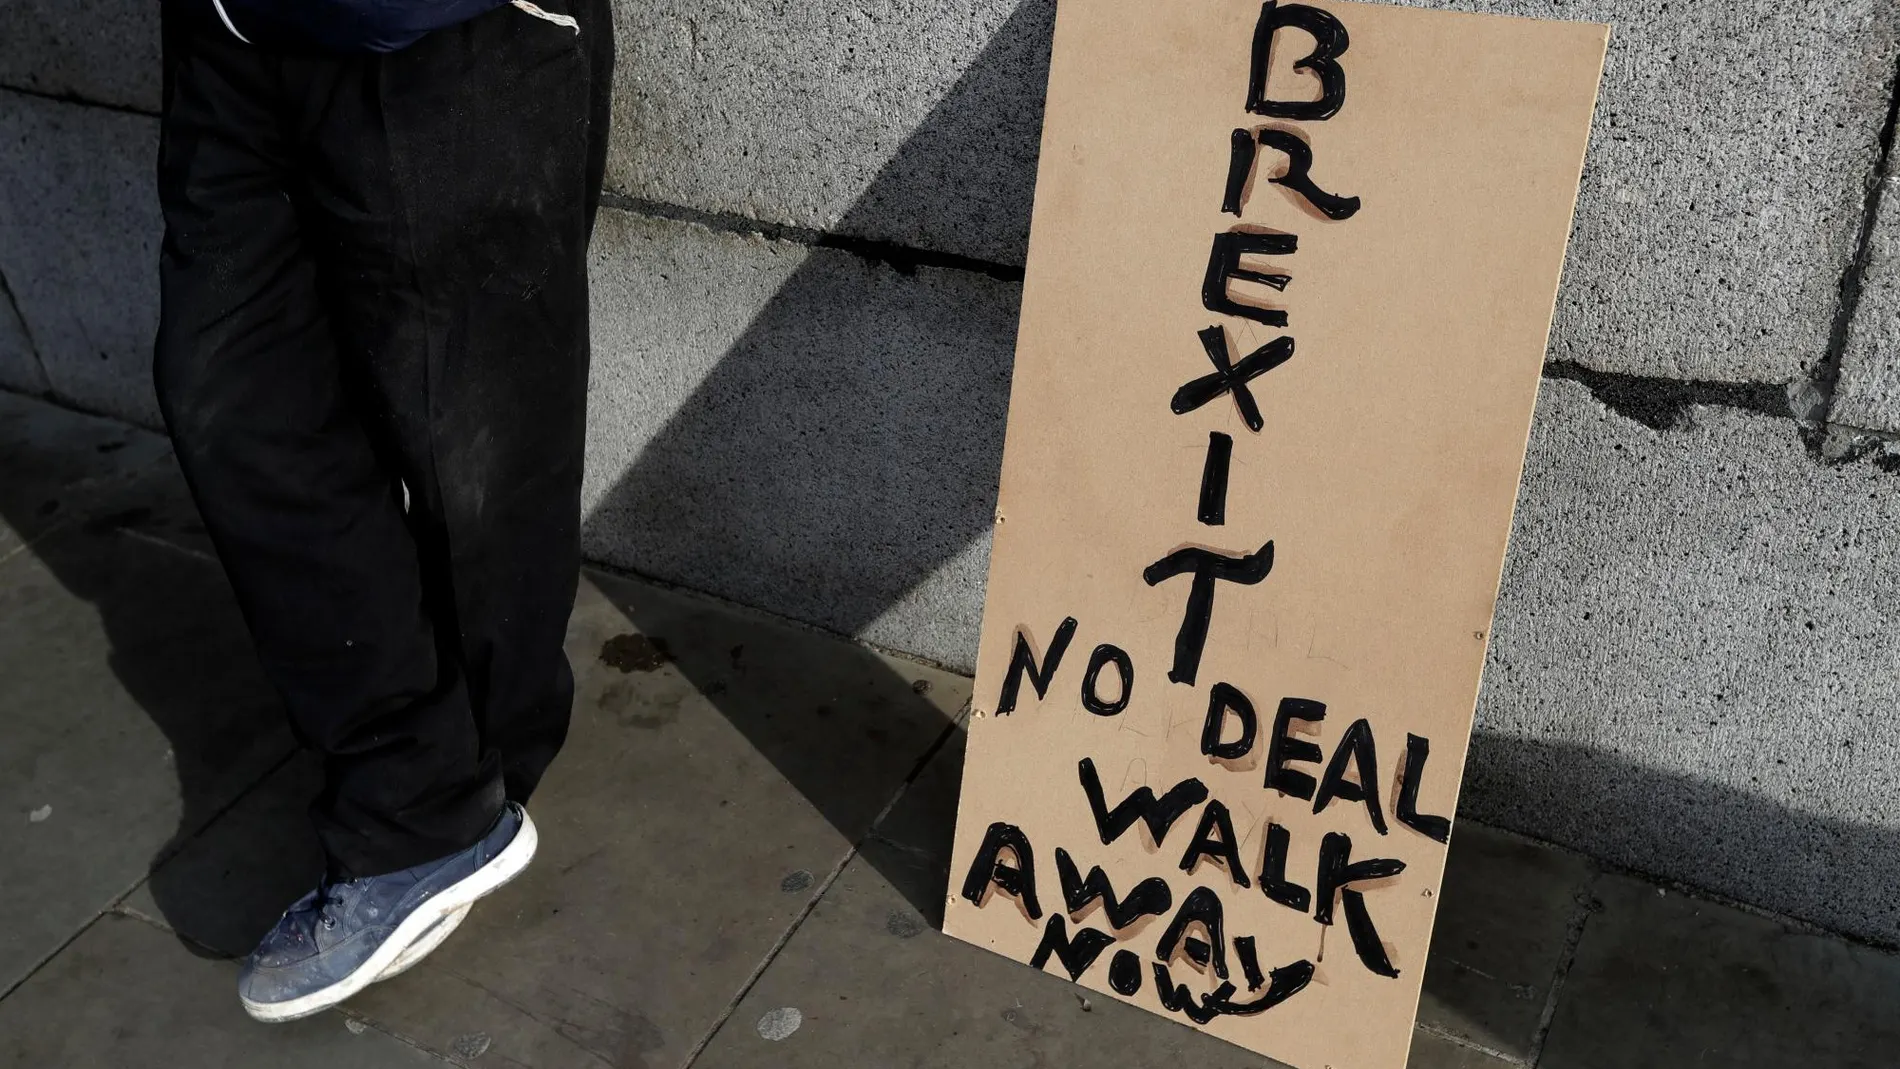 BREXIT
NO DEAL
WALK
AWAY
NOW